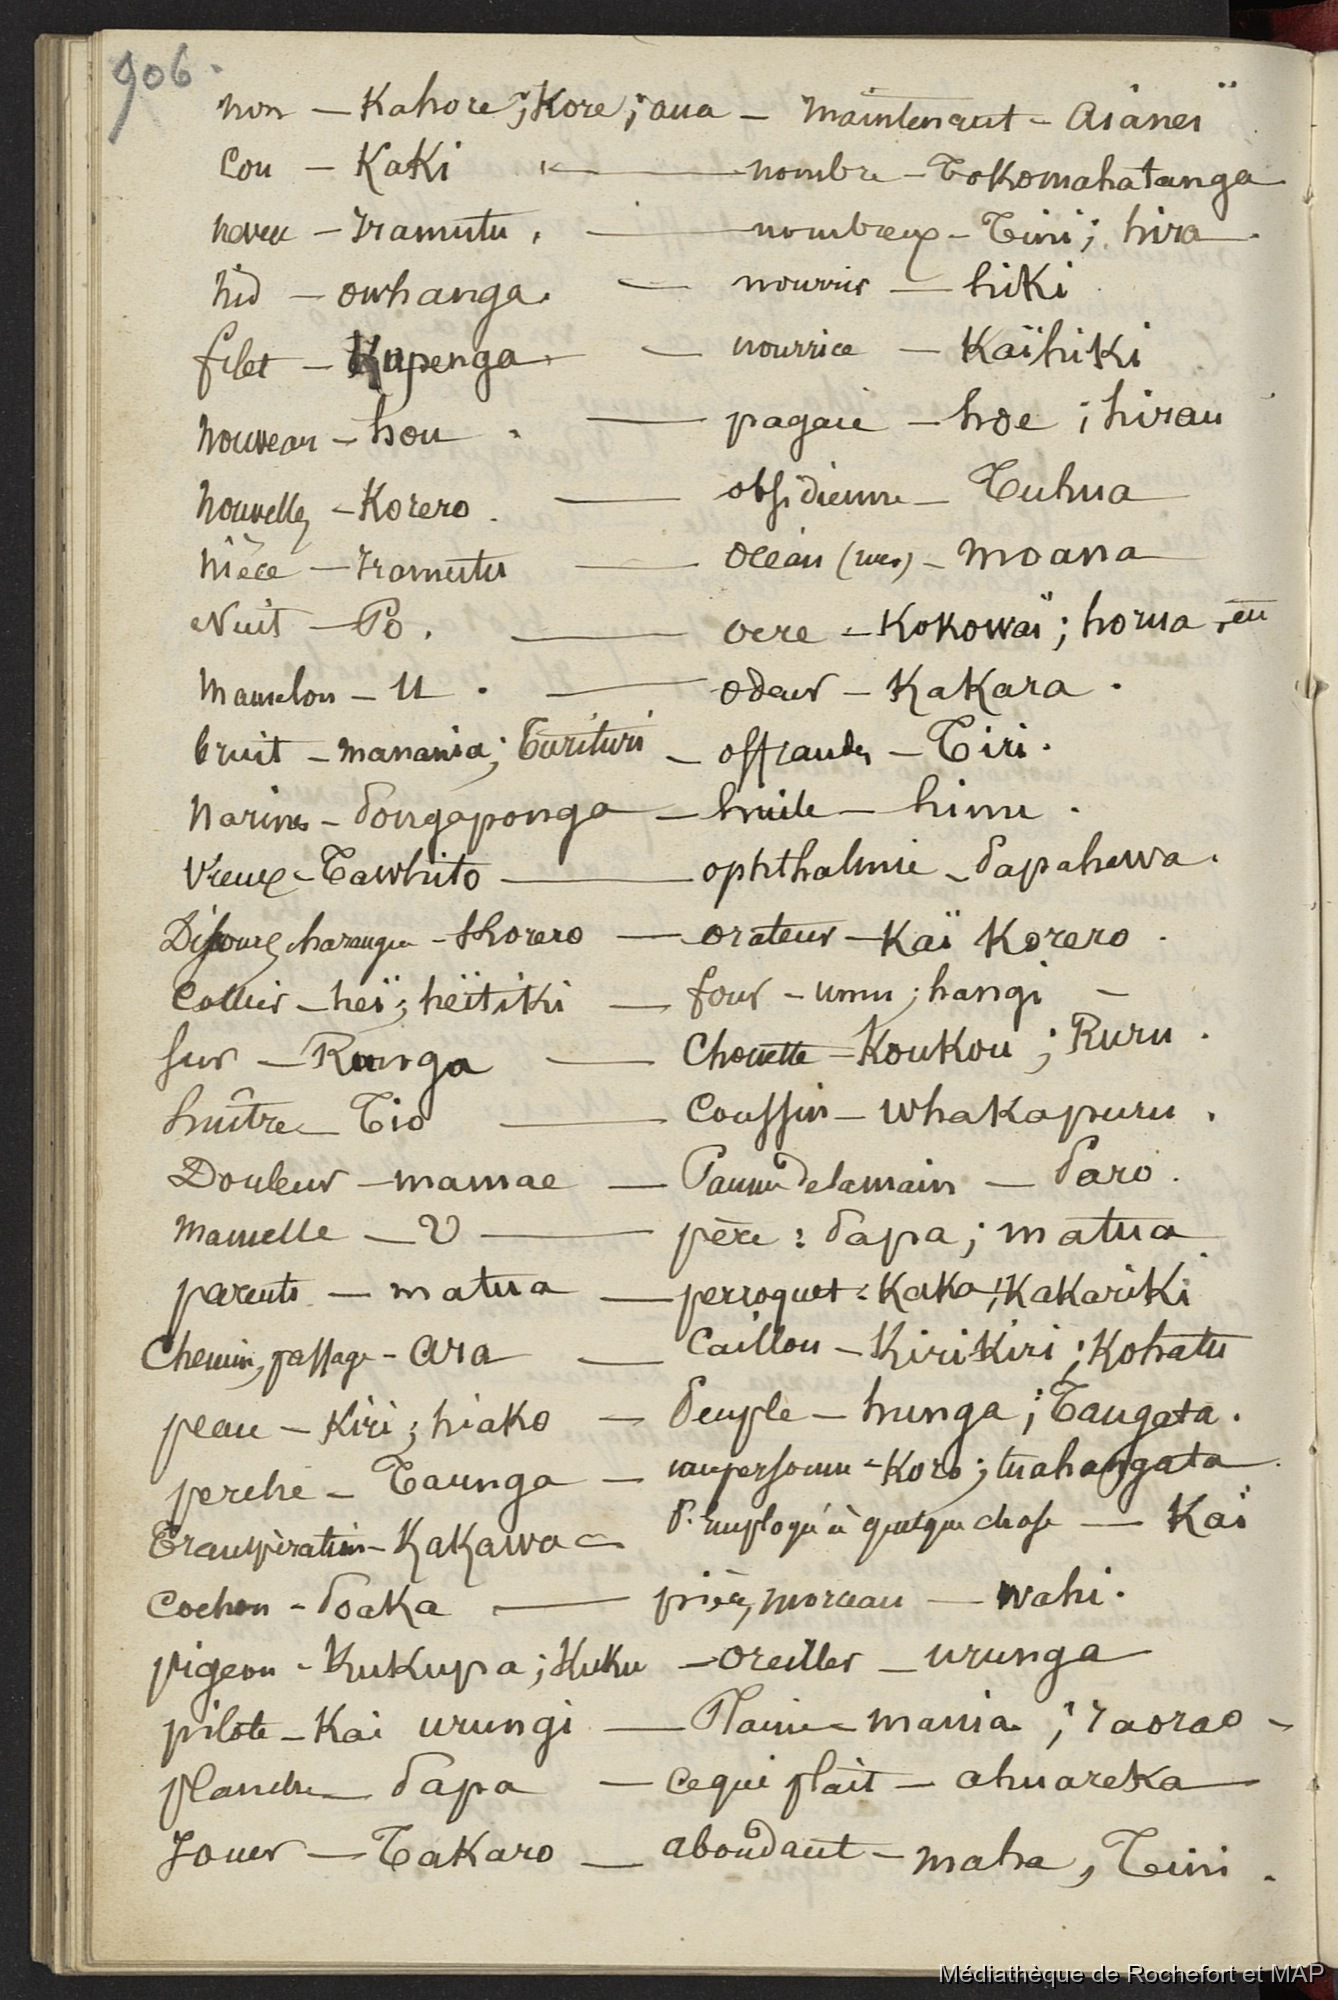 906.
non — Kahore; Kore; aua — maintenant - Aïaneï
Cou — KaKi — nombre — Tokomahatanga
neveu — Iramutu, — nombreux - Tini; hira
nid — owhanga. — nourrir — hiKi
filet — Kupenga — nourrice — KaïhiKi
nouveau — hou. — pagaie — hoe; hirau
nouvelles — Korero. — obsidienne — Tuhua
nièce — Iramutu — océan (mer) — moana
Nuit — Po. — ocre — Kokowaï; horua,
Mamelon — U. — odeur — KaKara.
bruit — manania; Turituri — offrandes — Tiri.
Narines — Pongaponga — huile — hinu.
Vieux — Tawhito — ophthalmie — Papahewa.
Discours, harangue — Korero — orateur — Kaï Korero.
Collier — heï; heïtiKi — four — umu; hangi —
Sur — Runga — Chouette — KouKou; Ruru.
huître — Tio — Coussin — whakapuru.
Douleur — mamae — Paume de la main — Paro.
Mamelle — U — père: Papa; matua
parents — matua — perroquet: Kaka; KaKariKi
Chemin, passage — Ara — Caillou — KiriKiri; Kohatu
peau — Kiri; hiako — Peuple — hunga; Tangata.
perche — Taunga — une personne — Koro; tuahangata
Transpiration — KaKawa — P. employé à quelque chose — Kaï
Cochon — PoaKa — pièce, morceau — wahi.
pigeon — KuKupa; KuKu — oreiller — urunga
pilote — Kai urungi — Plaine — mania; raorao —
planche — Papa — ce qui plait — ahuareKa
Jouer — TaKaro — abondant — maha, Tini.
Médiathèque de Rochefort et MAP